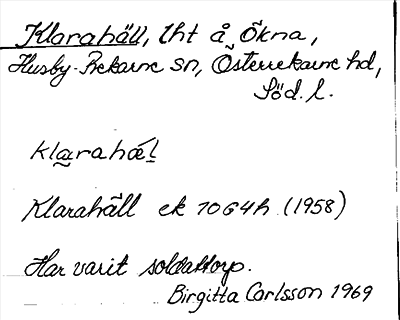 Klarahäll, lht å Ökna,
Husby-Rekarne sn, Österrekarne hd,
Söd. l.
klarahæl
Klarahäll ek 10G4h (1958)
Har varit soldattorp.
Birgitta Carlsson 1969